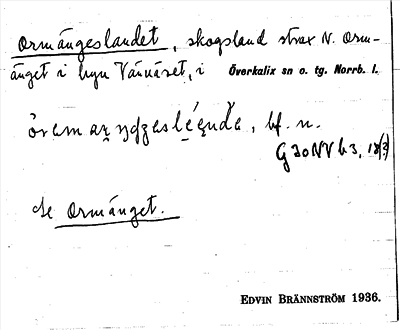 Ormängeslandet, skogsland strax N. Orm-
änget i byn Vännäset, i Överkalix sn o. tg. Norrb. l.
bf. n.
G 20 NV h 3, 18(?)
Se Ormänget.
EDVIN BRÄNNSTRÖM 1936.